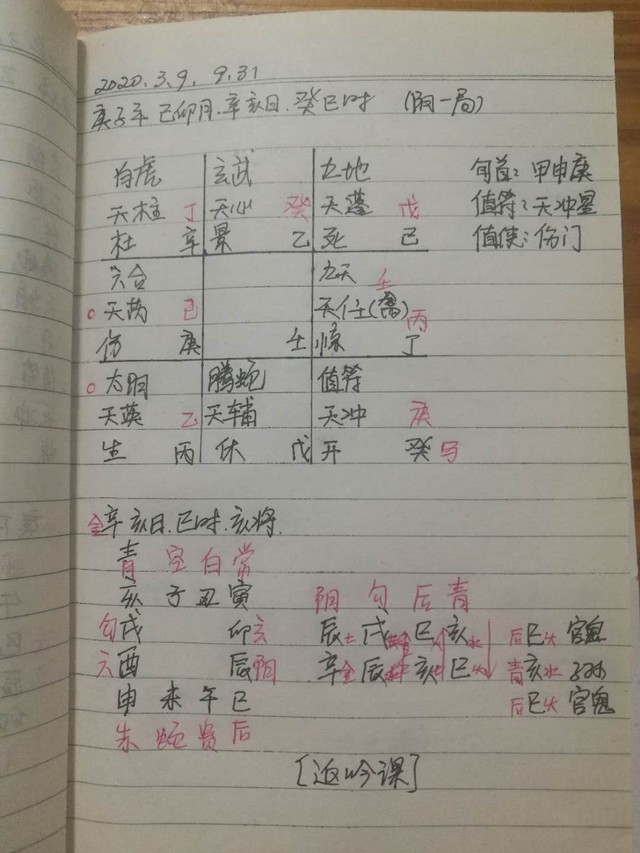 2020.3.9. 9.31
庚子年 己卯月.辛亥日.癸巳时 (阴一局)
白虎 玄武 九地 旬首:甲申庚
天柱 丁 天心 癸 天蓬 戊 值符:天冲星
杜 辛 景 乙 死 己 值使:伤门
六合 九天 壬
○天芮 己 天任(禽) 丙
伤 庚 壬 惊 丁
○太阴 腾蛇 值符
天英 乙 天辅 天冲 庚
生 丙 休 戊 开 癸 马
金辛亥日.巳时.亥将.
青 空 白 常
亥 子 丑 寅 阴 勾 后 青
勾戌 卯玄 辰土 戌 巳火 亥水 后巳火 官鬼
六酉 辰阴 辛金 辰 亥水 巳火 青亥水 子孙
申 未 午 巳 后巳火 官鬼
朱 蛇 贵 后
[返吟课]